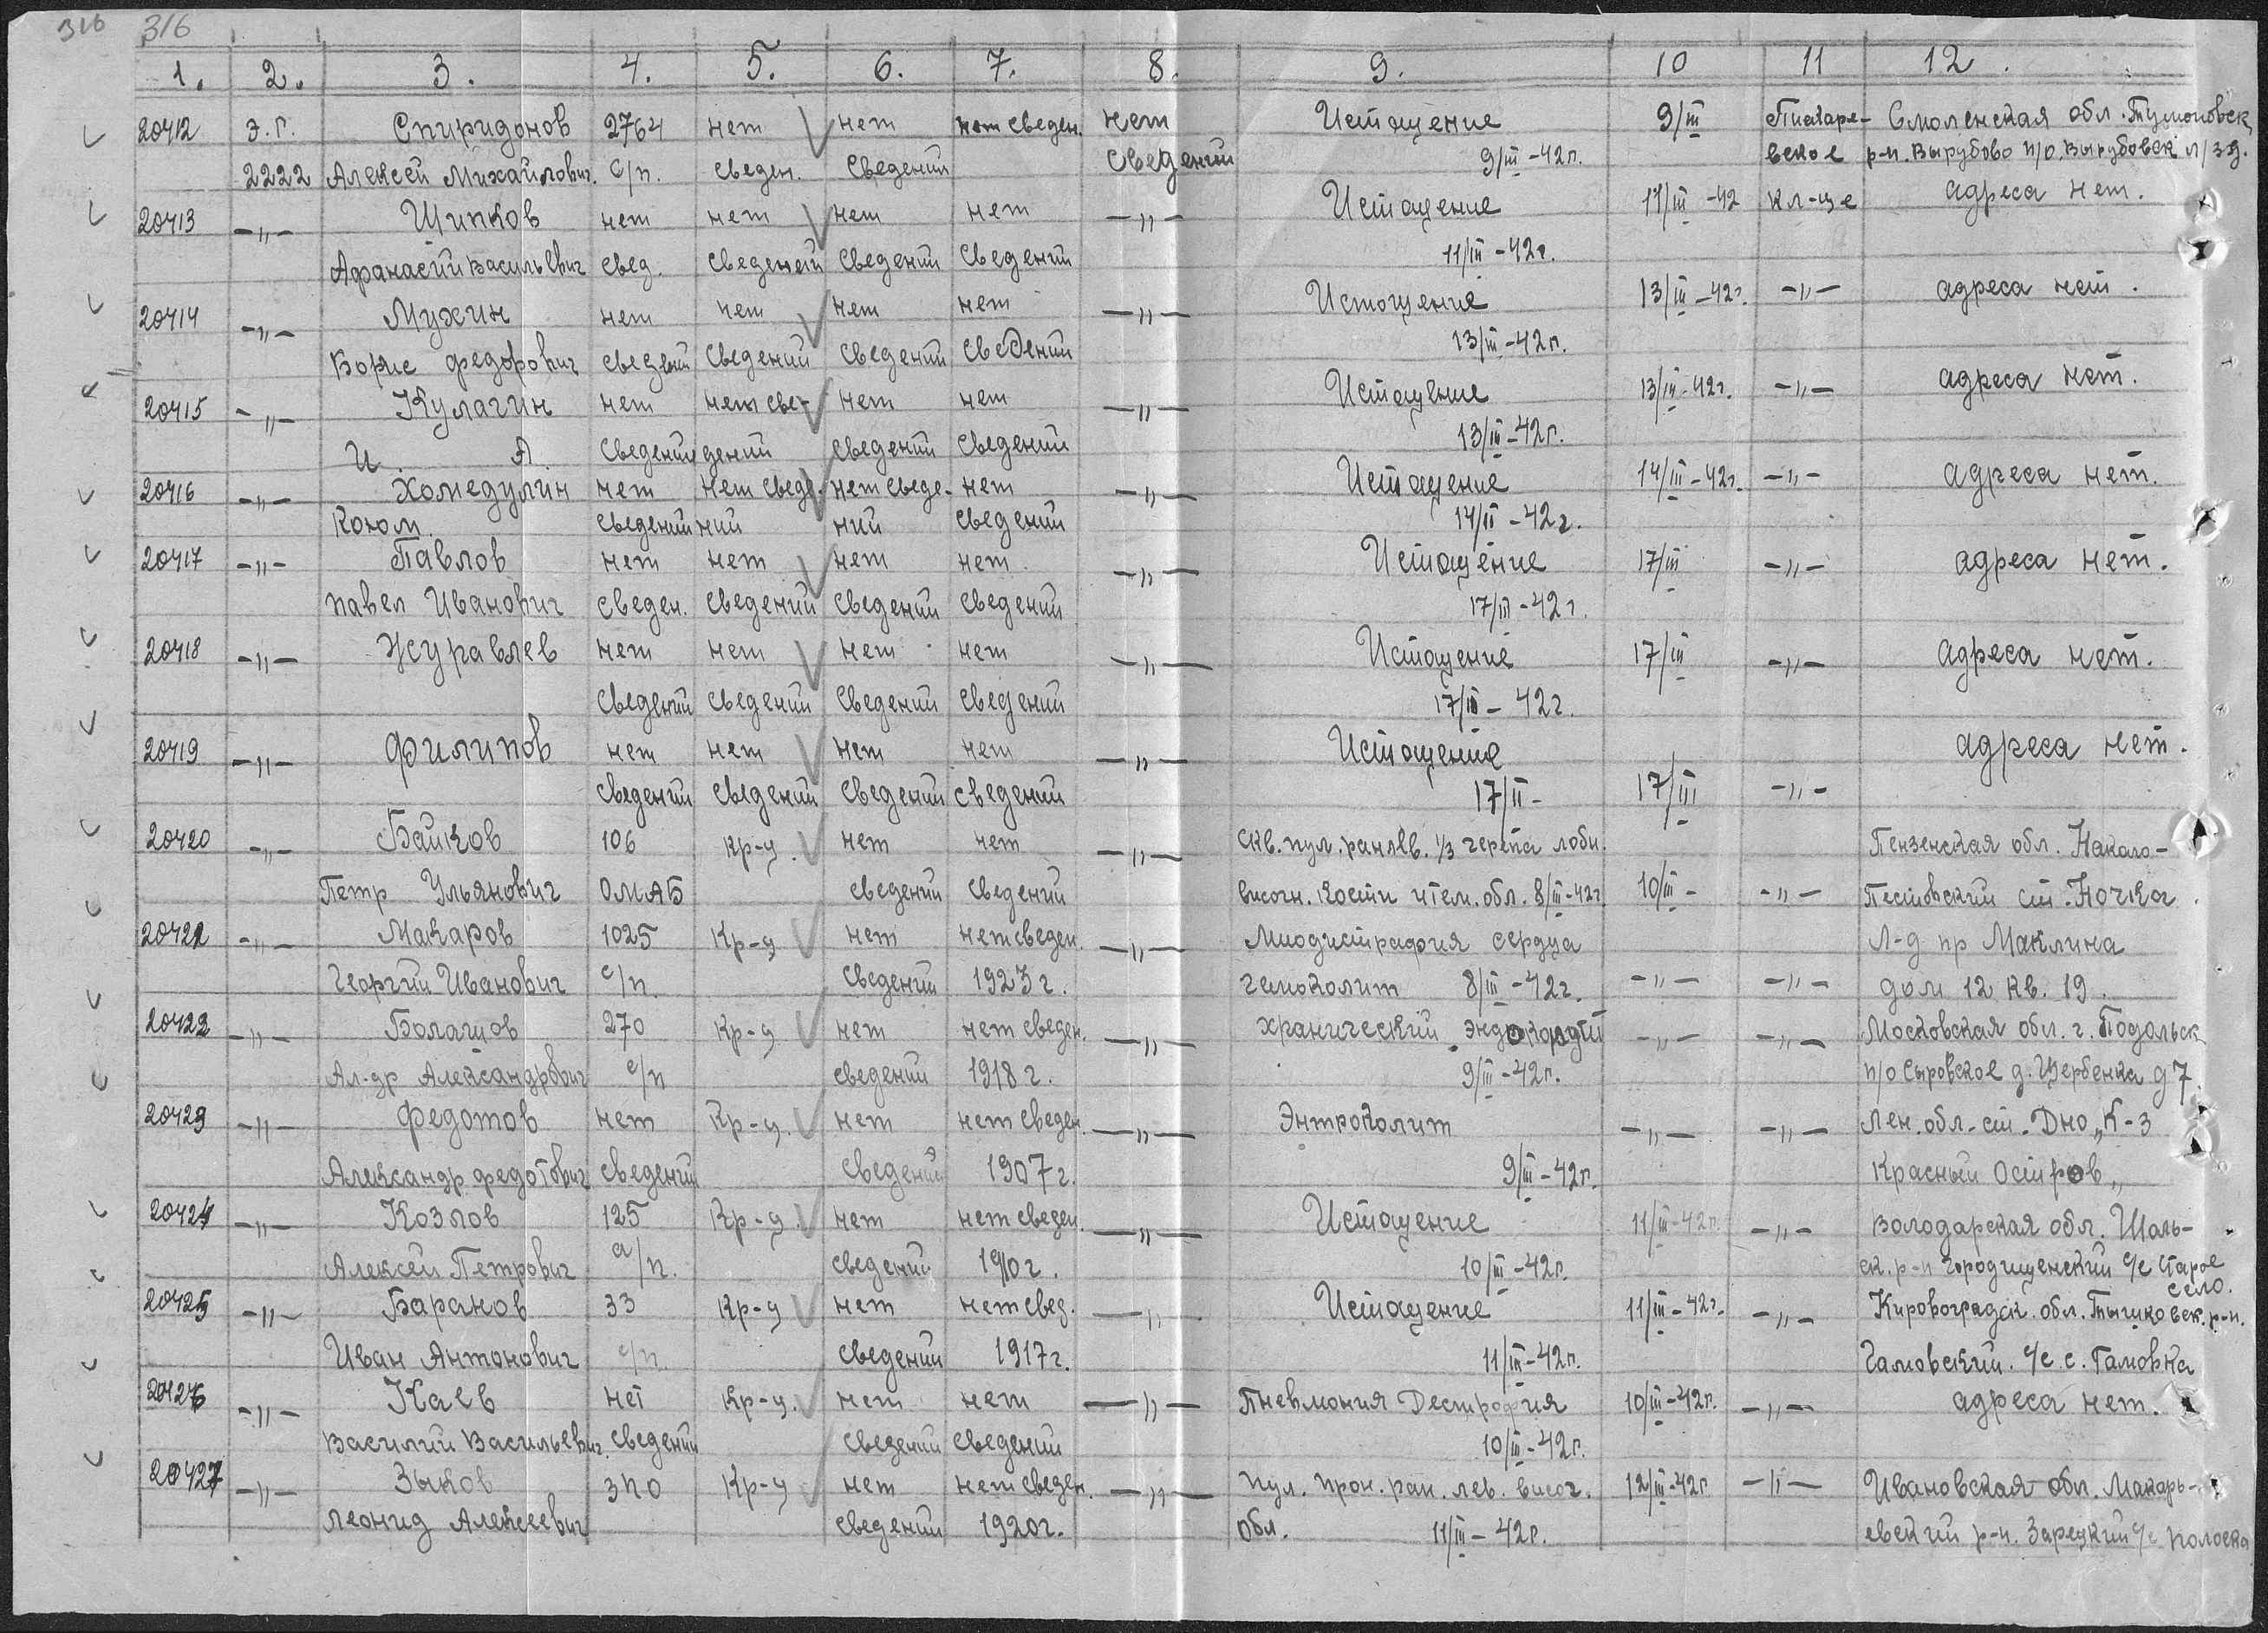 316 316
1. 2. 3. 4. 5. 6. 7. 8. 9. 10 11 12.
20412 Э.Г. Спиридонов 2764 нет нет нет сведен. нет Истощение 9/III Пискаре- Смоленская обл.
2222 Алексей Михайлович. с/п. сведен. сведений сведений 9/III-42г. вское р-н. Вырубово п/о. Вырубовск
20413 -"- Шипков нет нет нет нет -"- Истощение 11/III-42 кл-ще адреса нет.
Афанасий Васильевич свед. сведений сведений сведений 11/III-42г.
20414 -"- Мухин нет нет нет нет -"- Истощение 13/III-42г. -"- адреса нет.
Борис Федорович сведений сведений сведений сведений 13/III-42г.
20415 -"- Кулагин нет нет све- нет нет -"- Истощение 13/III-42г. -"- адреса нет.
И. А. сведений дений сведений сведений 13/III-42г.
20416 -"- Хомедулин нет нет сведе- нет сведе- нет -"- Истощение 14/III-42г. -"- адреса нет.
Коюм. сведений ний ний сведений 14/II-42г.
20417 -"- Павлов нет нет нет нет -"- Истощение 17/III -"- адреса нет.
Павел Иванович сведен. сведений сведений сведений 17/III-42г.
20418 -"- Журавлев нет нет нет нет -"- Истощение 17/III -"- адреса нет.
сведений сведений сведений сведений 17/III-42г.
20419 -"- Филипов нет нет нет нет -"- Истощение адреса нет.
сведений сведений сведений сведений 17/II- 17/III -"-
20420 -"- Байков 106 кр-ц. нет нет -"- скв. пул. ран. лев. 1/3 черепа лобн. Пензенская обл. Накало-
Петр Ульянович ОМАБ сведений сведений височн. кости и тем. обл. 8/III-42г. 10/III- -"- Пестовский ст. Ночка.
20421 -"- Макаров 1025 Кр-ц нет нет сведен. -"- Миодистрафия сердца Л-д пр Маклина
Георгий Иванович с/п. сведений 1923г. гемоколит 8/III-42г. -"- -"- дом 12 кв. 19.
20422 -"- Болашов 270 Кр-ц нет нет сведен. -"- хранический -"- -"- Московская обл. г. Подольск
Ал-др Александрович с/п сведений 1918г. 9/III-42г. п/о Сыровское д. Щербенка д 7.
20423 -"- Федотов нет Кр-ц. нет нет сведен. -"- Энтроколит -"- -"- Лен. обл. ст. Дно „К-з
Александр Федотович сведений сведений 1907г. 9/III-42г. Красный Остров„
20424 -"- Козлов 125 Кр-ц. нет нет сведен. -"- Истощение 11/III-42г. -"- Володарская обл. Шаль-
Алексей Петрович а/п. сведений 1910г. 10/III-42г. ск. р-н Городищенский с/с Старое
село.
20425 -"- Баранов 33 Кр-ц нет нет свед. -"- Истощение 11/III-42г. -"- Кировоградск. обл. Тышковск. р-н.
Иван Антонович с/п. сведений 1917г. 11/III-42г. Гамовский. с/с с. Гамовка
20426 -"- Каев нет Кр-ц. нет нет -"- Пневмония Дестрофия 10/III-42г. -"- адреса нет.
Василий Васильевич. сведений сведений сведений 10/III-42г.
20427 -"- Зыков зпо Кр-ц нет нет сведен. -"- пул. прон. ран. лев. височ. 12/III-42г -"- Ивановская обл. Макарь-
Леонид Алексеевич сведений 1920г. обл. 11/III-42г. евский р-н. Зарецкий с/с